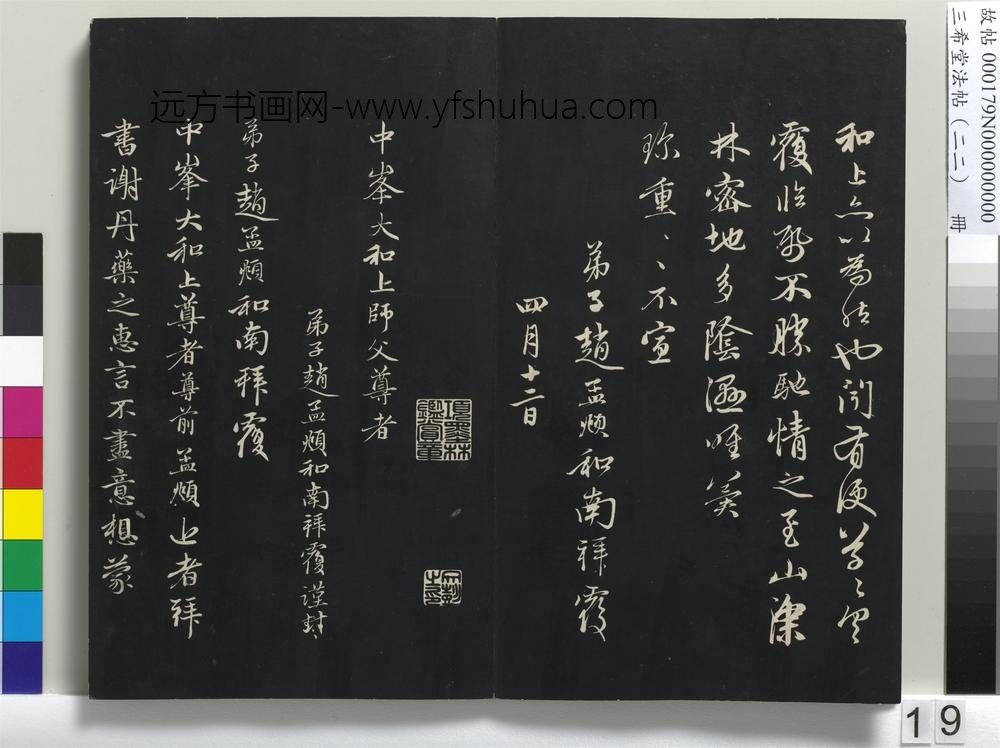 和上亦以为然也闻有便草草具
覆临纸不胜驰情之至山深
林密地多阴湿唯冀
珍重、、不宣
弟子赵孟頫和南拜覆
四月十二日
項墨林鑑賞章
中峯大和上師父尊者
弟子趙孟頫和南拜覆謹封
弟子趙孟頫和南拜覆
中峯大和上尊者尊前孟頫近者拜
書謝丹藥之惠言不盡意想蒙
远方书画网-www.yfshuhua.com
故帖 000179N000000000
三希堂法帖（二二） 冊
19